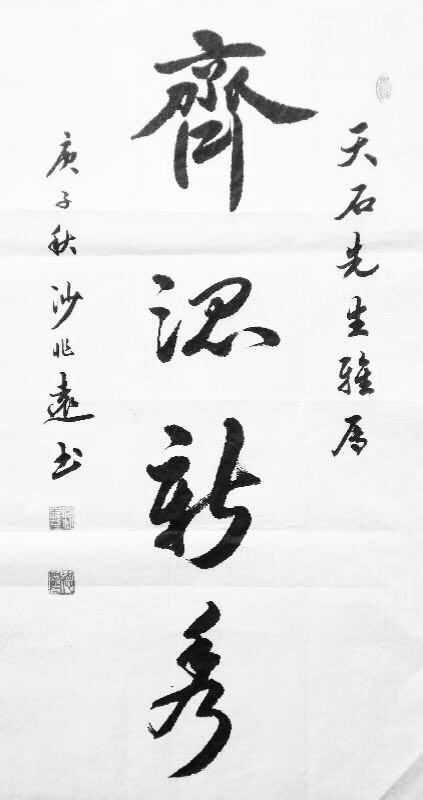 天石先生雅属
齊新秀
庚子秋沙兆遠书